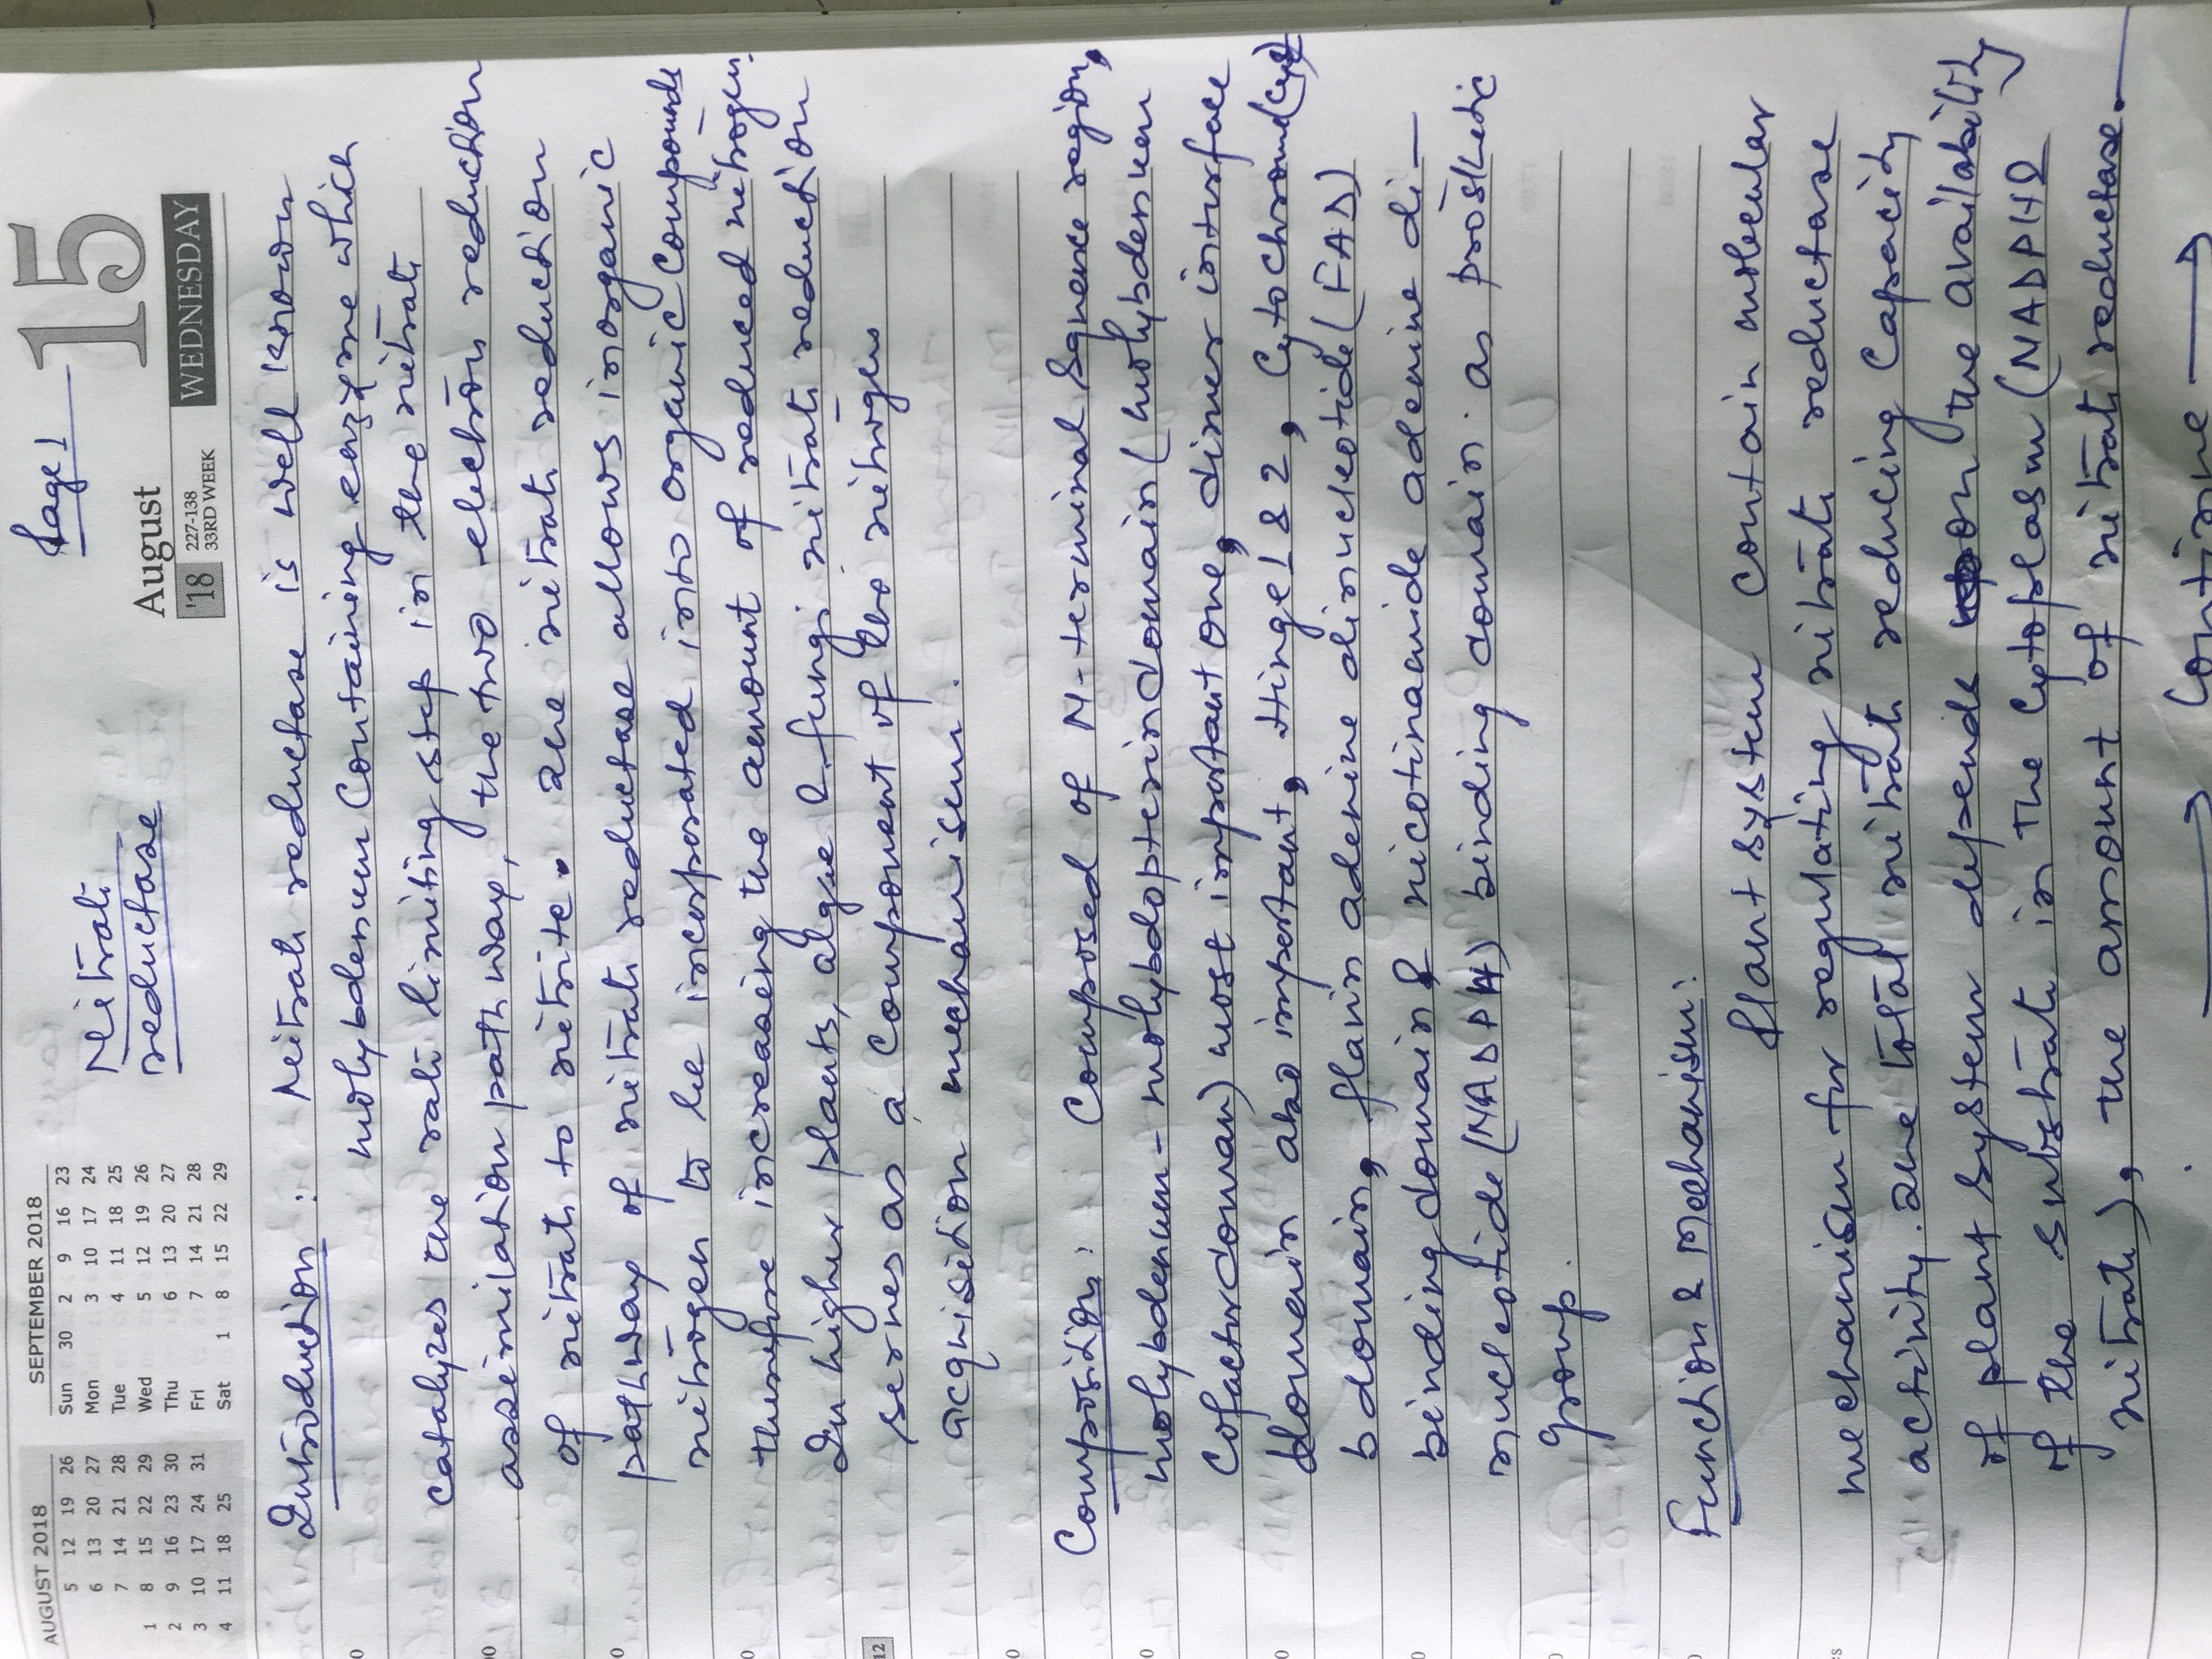 Page 1
15
August
WEDNESDAY
'18
227-138
33RD WEEK
Nitrate
reductase
SEPTEMBER 2018
Sun 30 2 9 16 23
Mon 3 10 17 24
Tue 4 11 18 25
Wed 5 12 19 26
Thu 6 13 20 27
Fri 7 14 21 28
Sat 1 8 15 22 29
AUGUST 2018
5 12 19 26
6 13 20 27
7 14 21 28
1 8 15 22 29
2 9 16 23 30
3 10 17 24 31
4 11 18 25
Introduction: Nitrate reductase is well known
molybdenum containing enzyme which
catalyzes the rate limiting step in the nitrate
assimilation pathway, the two electron reduction
of nitrate to nitrite. The nitrate reduction
pathway of nitrate reductase allows inorganic
nitrogen to be incorporated into organic compounds
therefore increasing the amount of reduced nitrogen.
In higher plants, algae & fungi nitrate reduction
serves as a component of the nitrogen
acquisition mechanism.
12
Composition: Composed of N-terminal Sqnence region,
molybdenum-molybdopterin domain (molybdenum
cofactor domain) most important one, dimer interface
domain also important, Hinge 1 & 2, Cytochrome (Cyt)
b domain, flavin adenine dinucleotide (FAD)
binding domain & nicotinamide adenine di-
nucleotide (NADPH) binding domain as prosthetic
group.
Function & Mechanism:
Plant system contain molecular
mechanism for regulating nitrate reductase
activity. The total nitrate reducing capacity
of plant system depends on the availability
of the substrate in the cytoplasm (NADPH &
nitrate), the amount of nitrate reductase.
Continue